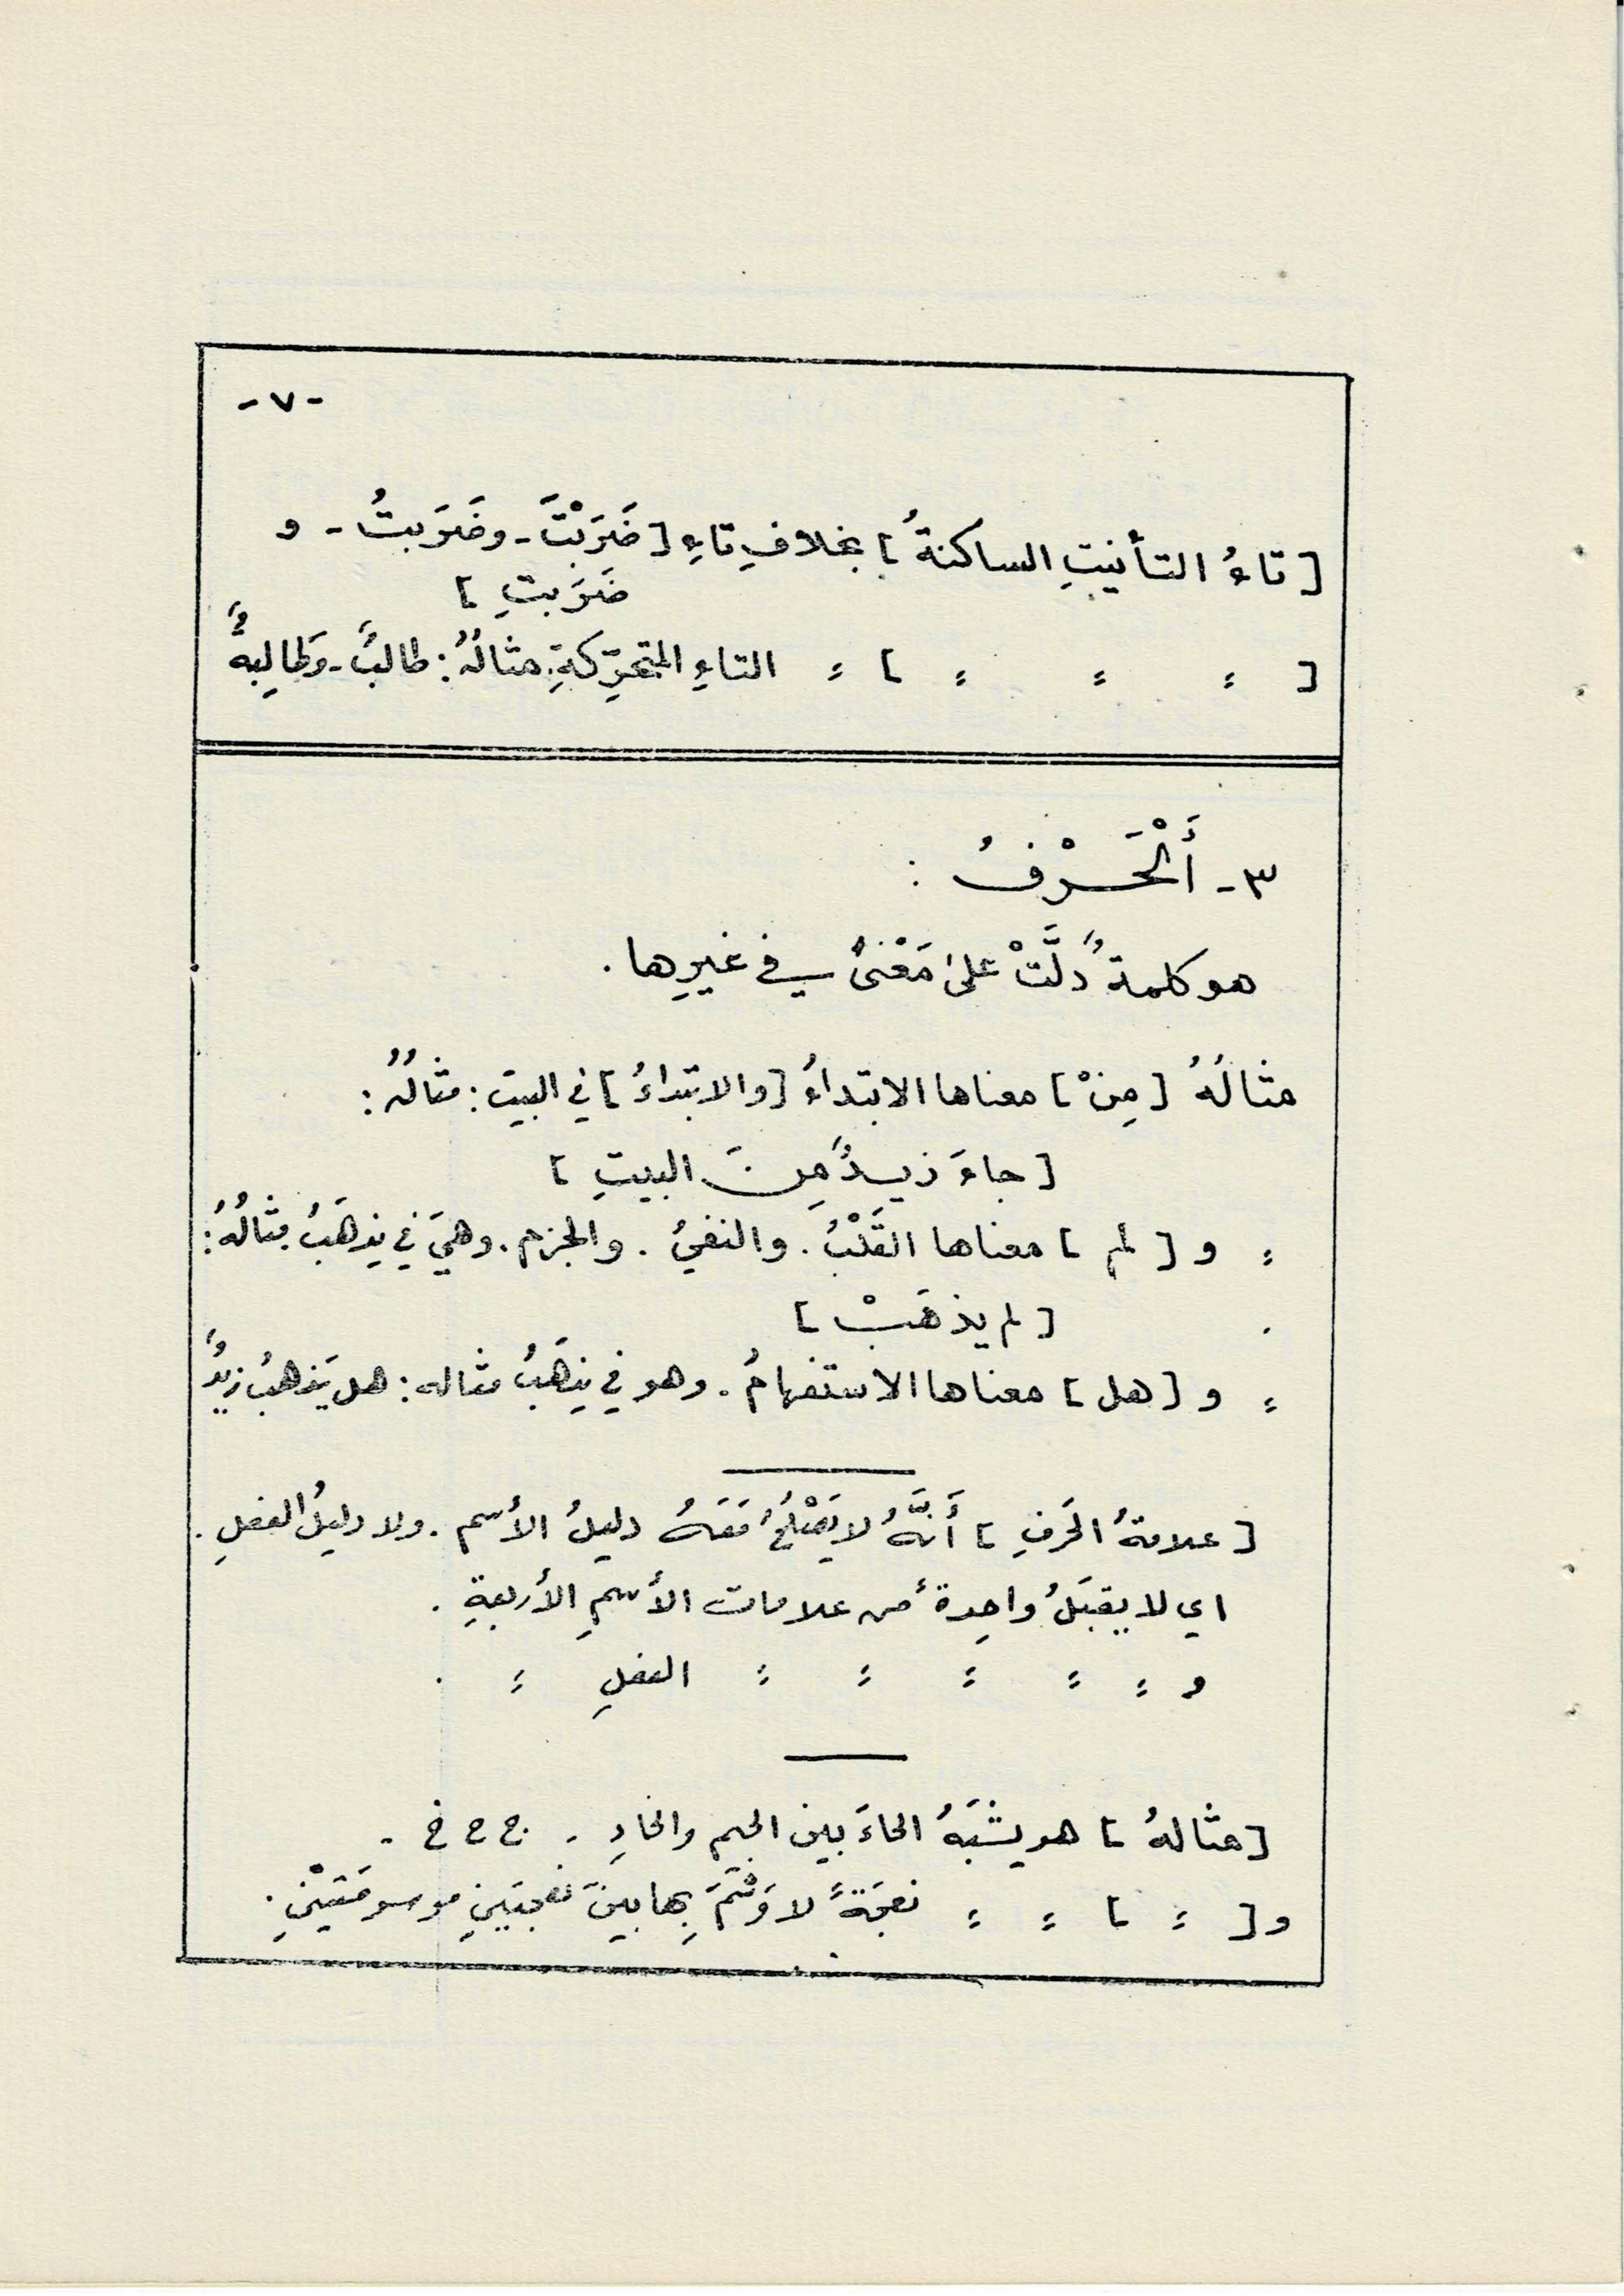 -٧-
[ تاءُ التأنيثِ الساكنةُ ] بخلافِ تاءِ [ ضَرَبْتَ - وضَرَبتُ - و
ضَرَبتِ ]
[ = = = ] = التاءِ المتحرِّكةِ. مثالُهُ : طالبٌ - وَطالِبةٌ
٣- أَلْحَرْفُ :
هو كلمةٌ دلَّتْ على مَعْنىً في غيرِها .
مثالُهُ [ مِنْ ] معناها الابتداءُ [ والابتداءُ ] في البيت : مثالُهُ :
[ جاءَ زيدٌ مِنَ البيتِ ]
= و [ لم ] معناها القَلْبُ . والنفيُ . والجزم . وهيَ في يذهَبُ مثالُهُ :
[ لم يذهَبْ ]
= و [ هل ] معناها الاستفهامُ . وهو في يذهَبُ مثاله : هل يَذهبُ زيدٌ
[ علامةُ الحَرفِ ] أَنَّهُ لا يَصْلُحُ مَعَهُ دليلُ الأسم . ولا دليلُ الفعلِ .
اي لا يقبَلُ واحِدة من علامات الأسمِ الأربعةِ .
و = = = = = الفعلِ = .
[ مثالهُ ] هو يشبَهُ الحاءَ بين الجيم والخاءِ . ج ح خ .
و [ = ] = = نعجَةً لا وَشْمَ بِها بينَ نعجتَينِ موسومَتَيْنِ .